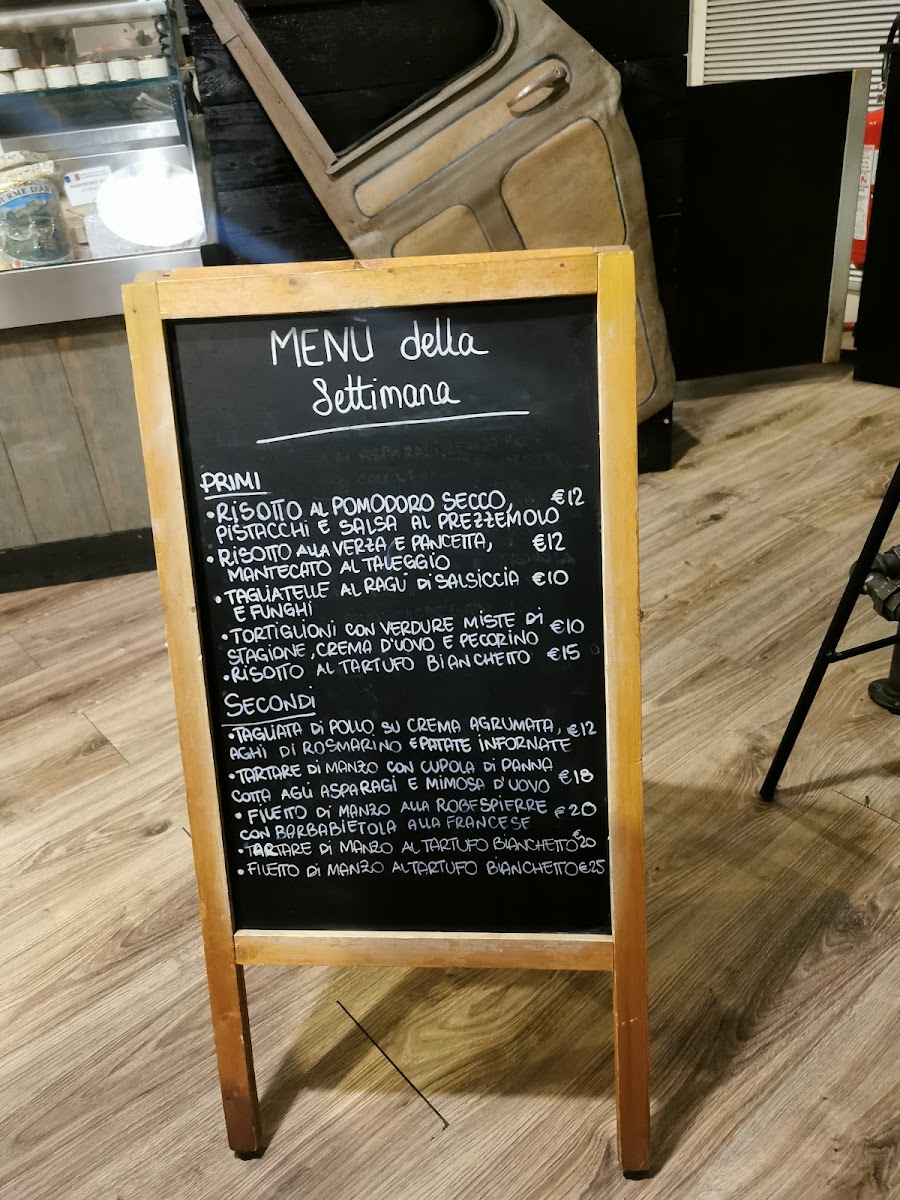 URME D'A
MENÙ della
Settimana
PRIMI
• RISOTTO AL POMODORO SECCO, €12
PISTACCHI E SALSA AL PREZZEMOLO
• RISOTTO ALLA VERZA E PANCETTA, €12
MANTECATO AL TALEGGIO
• TAGLIATELLE AL RAGÙ DI SALSICCIA €10
E FUNGHI
• TORTIGLIONI CON VERDURE MISTE DI €10
STAGIONE, CREMA D'UOVO E PECORINO
• RISOTTO AL TARTUFO BIANCHETTO €15
SECONDI
• TAGLIATA DI POLLO SU CREMA AGRUMATA, €12
AGHI DI ROSMARINO E PATATE INFORNATE
• TARTARE DI MANZO CON CUPOLA DI PANNA €18
COTTA AGLI ASPARAGI E MIMOSA D'UOVO
• FILETTO DI MANZO ALLA ROBESPIERRE €20
CON BARBABIETOLA ALLA FRANCESE
• TARTARE DI MANZO AL TARTUFO BIANCHETTO €20
• FILETTO DI MANZO AL TARTUFO BIANCHETTO €25